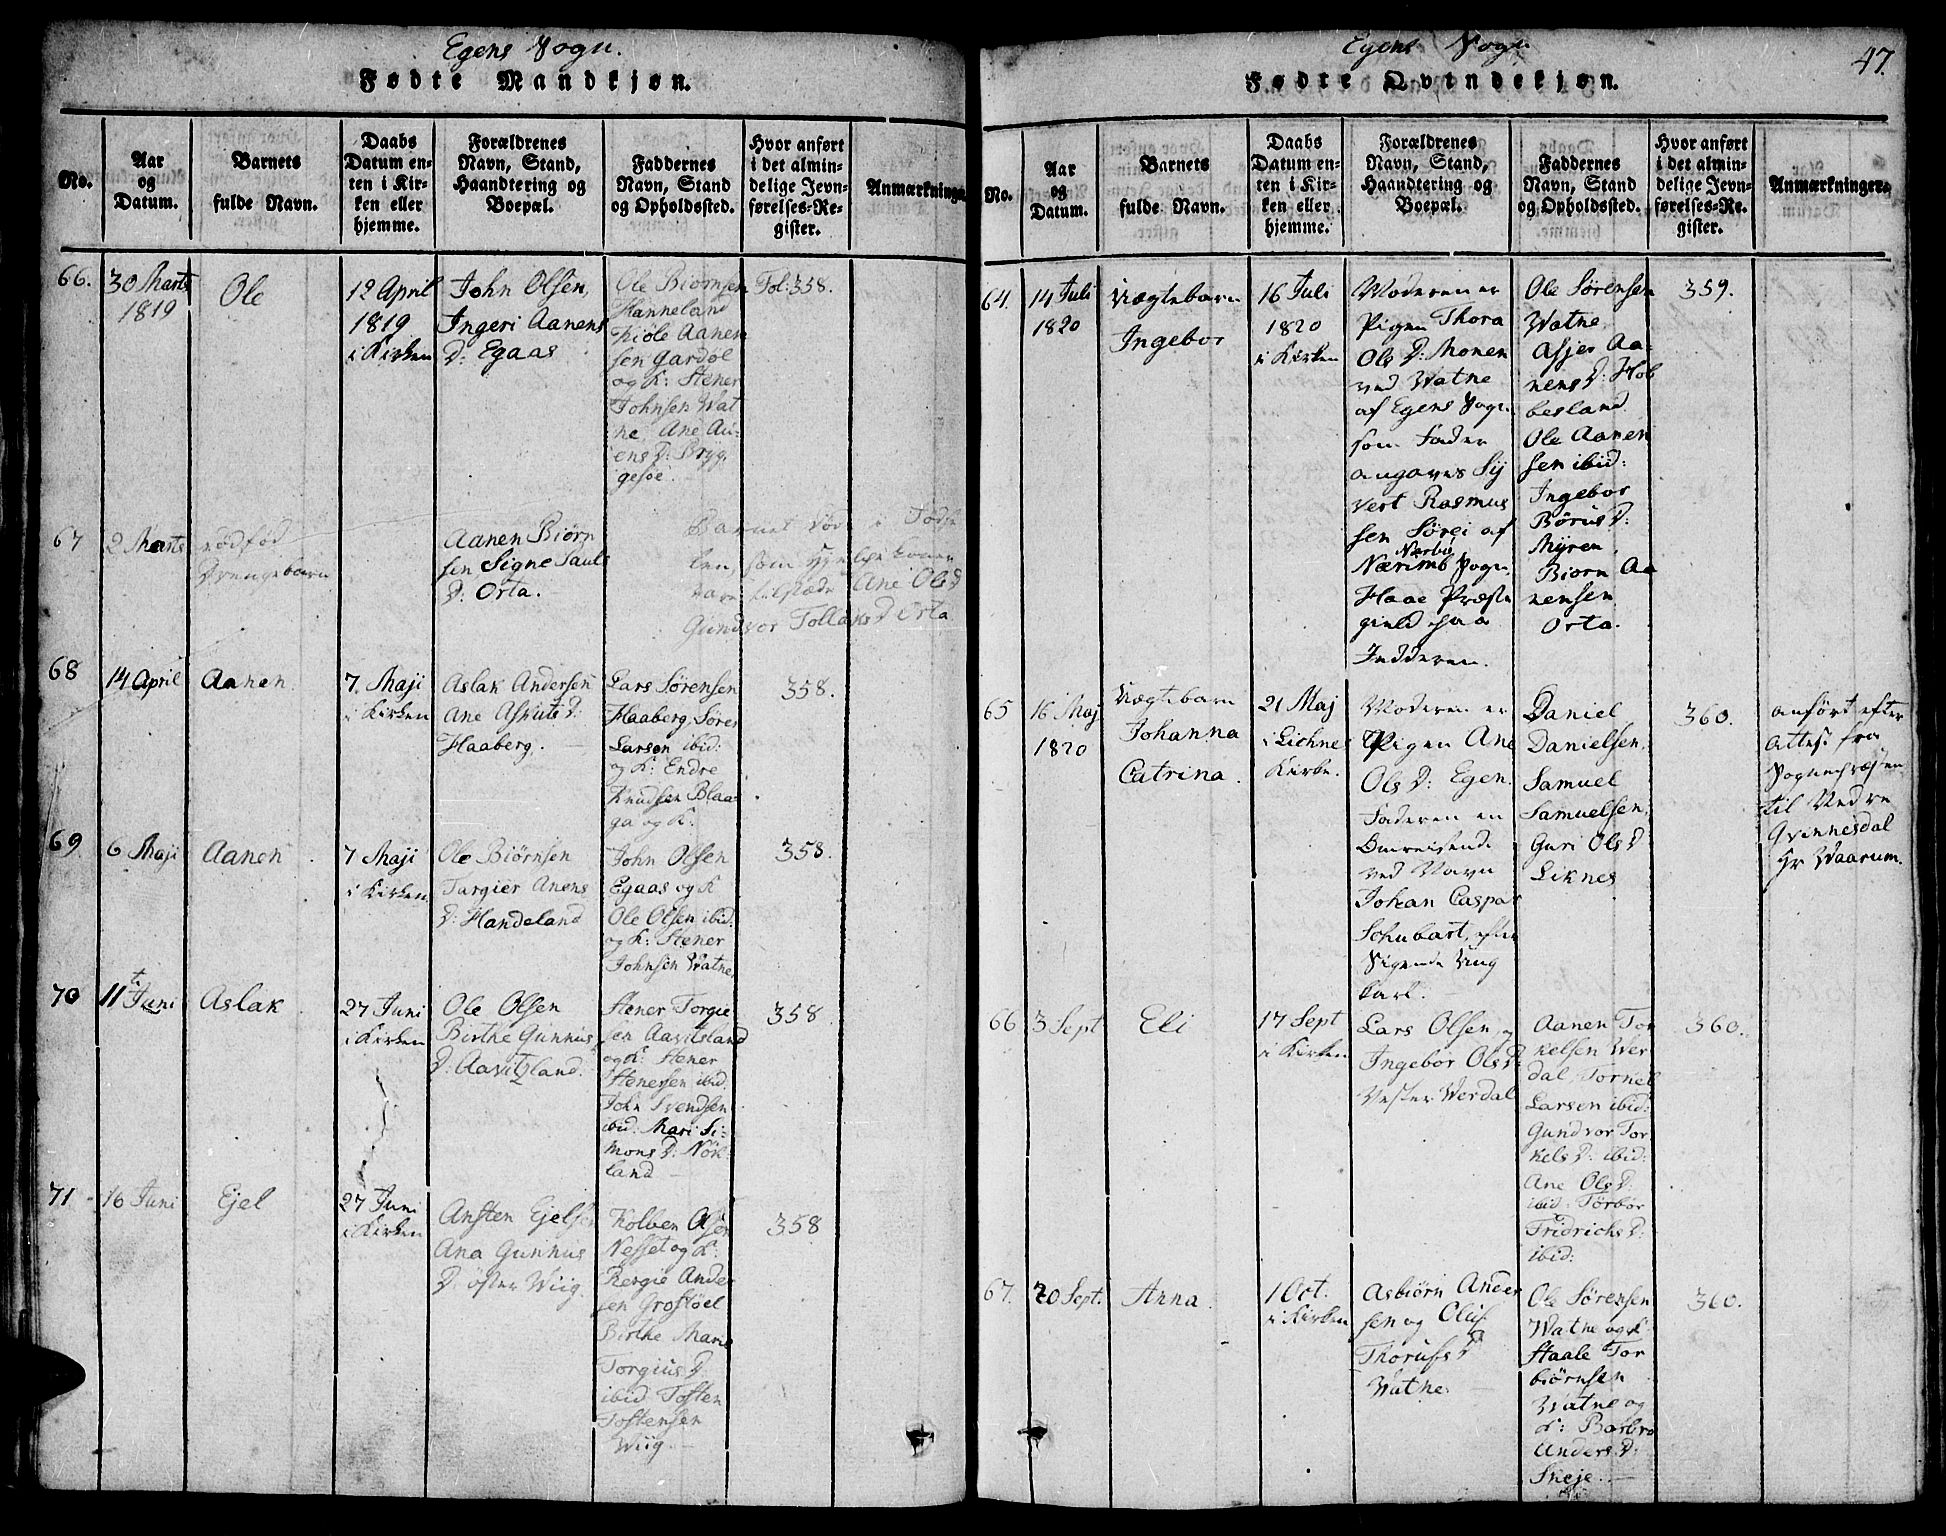 Egens Sogn.
Fødte Mandkjøn.
No.
Aar
og
Datum.
Barnets
fulde Navn.
Daabs
Datum en-
ten i Kir-
ken eller
hjemme.
Forældrenes
Navn, Stand,
Haandtering og
Boepæl.
Faddernes
Navn, Stand
og Opholdssted.
Hvor anført
i det almin-
delige Jevn-
førelses-Re-
gister.
Anmærkninger
66.
30 Marts
1819
Ole
12 April
1819
i Kirken
John Olsen,
Ingeri Aanens
D: Egaas
Ole Biørnsen
Hanneland
Aanen
sen Gardøl
og K: Stener
Johnsen Wat
ne, Ane Au-
ens D: Brÿg,
gesöe.
Fol: 358.
67
2 Marts
dödfød
Drengebarn
Aanen Biørn
sen Signe Sauls
D: Orta.
Barnet död i Födse
len, som
vare tilstæde Ane Ols D
Gundvor Tollaks D Orta
68
14 April
Aanen
7. Maji
i Kirken
Aslak Andersen
Ane Asluts D:
Haaberg.
Lars Sørensen
Haaberg, Søren
Larsen ibid:
og K: Endre
Knudsen Blaa-
ga og K:
358.
69.
6 Maji
Aanen
7 Maji
i Kirken
Ole Biørnsen
Targier Anens
D: Handeland
John Olsen
Egaas og K
Ole Olsen ibid:
og K: Stener
Johnsen Watne
358.
70
11t Juni
Aslak
27 Juni
i Kirken
Ole Olsen
Birthe Gunnus
D: Aavitzland.
Stener Torgie
sen Aavitsland
og K: Stener
Stenersen ibid.
John Svendsen
ibid: Mari Si-
mons D: Nök-
land
358
71
16 Juni
Ejel
27 Juni
i Kirken
Ansten Ejelsen
Ana Gunnus
D: öster Wiig.
Kolben Olsen
Nesset og K:
Bergie Ander
sen Grostöel
Birthe Mari
Torgius D
ibid Tosten
Tostensen
Wiig.
358
Egens Sogn
47.
Fødte Qvindekjøn.
No.
Aar
og
Datum.
Barnets
fulde Navn.
Daabs
Datum en-
ten i Kir-
ken eller
hjemme.
Forældrenes
Navn, Stand,
Haandtering og
Boepæl.
Faddernes
Navn, Stand
og Opholdssted.
Hvor anført
i det almin-
delige Jevn-
førelses-Re-
gister.
Anmærkninger.
64.
14 Juli
1820
Uægtebarn
Ingebor
16 Juli
1820
i Kirken
Moderen er
Pigen Thora
Ols D: Monen
ved Watne
af Egens Sogn
som Fader
angaves Sÿ
vert Rasmus
sen Sørei af
Nærbø
Nærimb Sogn,
Haae Præste
gield paa
Jedderen.
Ole Sørensen
Watne,
Asjer Aa-
nens D: Hob
besland.
Ole Aanen
sen ibid:
Ingebor
Børius D:
Myren,
Biorn Aa
nensen
Orta.
359.
65
16 Maj
1820
Uægtebarn
Johanna
Catrina.
21 Maj
i Lichnes
Kirke.
Moderen er
Pigen Ane
Ols D: Egen.
Faderen en
Omreisende
ved Navn
Johan Caspar
Schubart, efter
Sigende Ung
karl.
Daniel
Danielsen,
Samuel
Samuelsen,
Guri Ols D
Liknes
360.
anført efter
Attest fra
Sognepræsten
til Nedre
Qvinnesdal
Hr Waarum.
66
3 Sept
Eli
17 Sept
i Kirken
Lars Olsen, og
Ingebor Ols D:
Vester Werdal
Aanen Tor
kelsen Wer
dal, Tornel
Larsen ibid:
Gundvor Tor
kels D: ibid:
Ane Ols D:
ibid: Torbor
Fridrichs D:
ibid:
360.
67.
20 Sept.
Anna.
1 Oct.
i Kirken
Asbiørn Ander
sen og Oluf
Thorufs D
Watne
Ole Sørensen
Watne og K
Staale Tor
biørnsen
Watne og
K: Barbro
Anders D:
Sneje.
360.